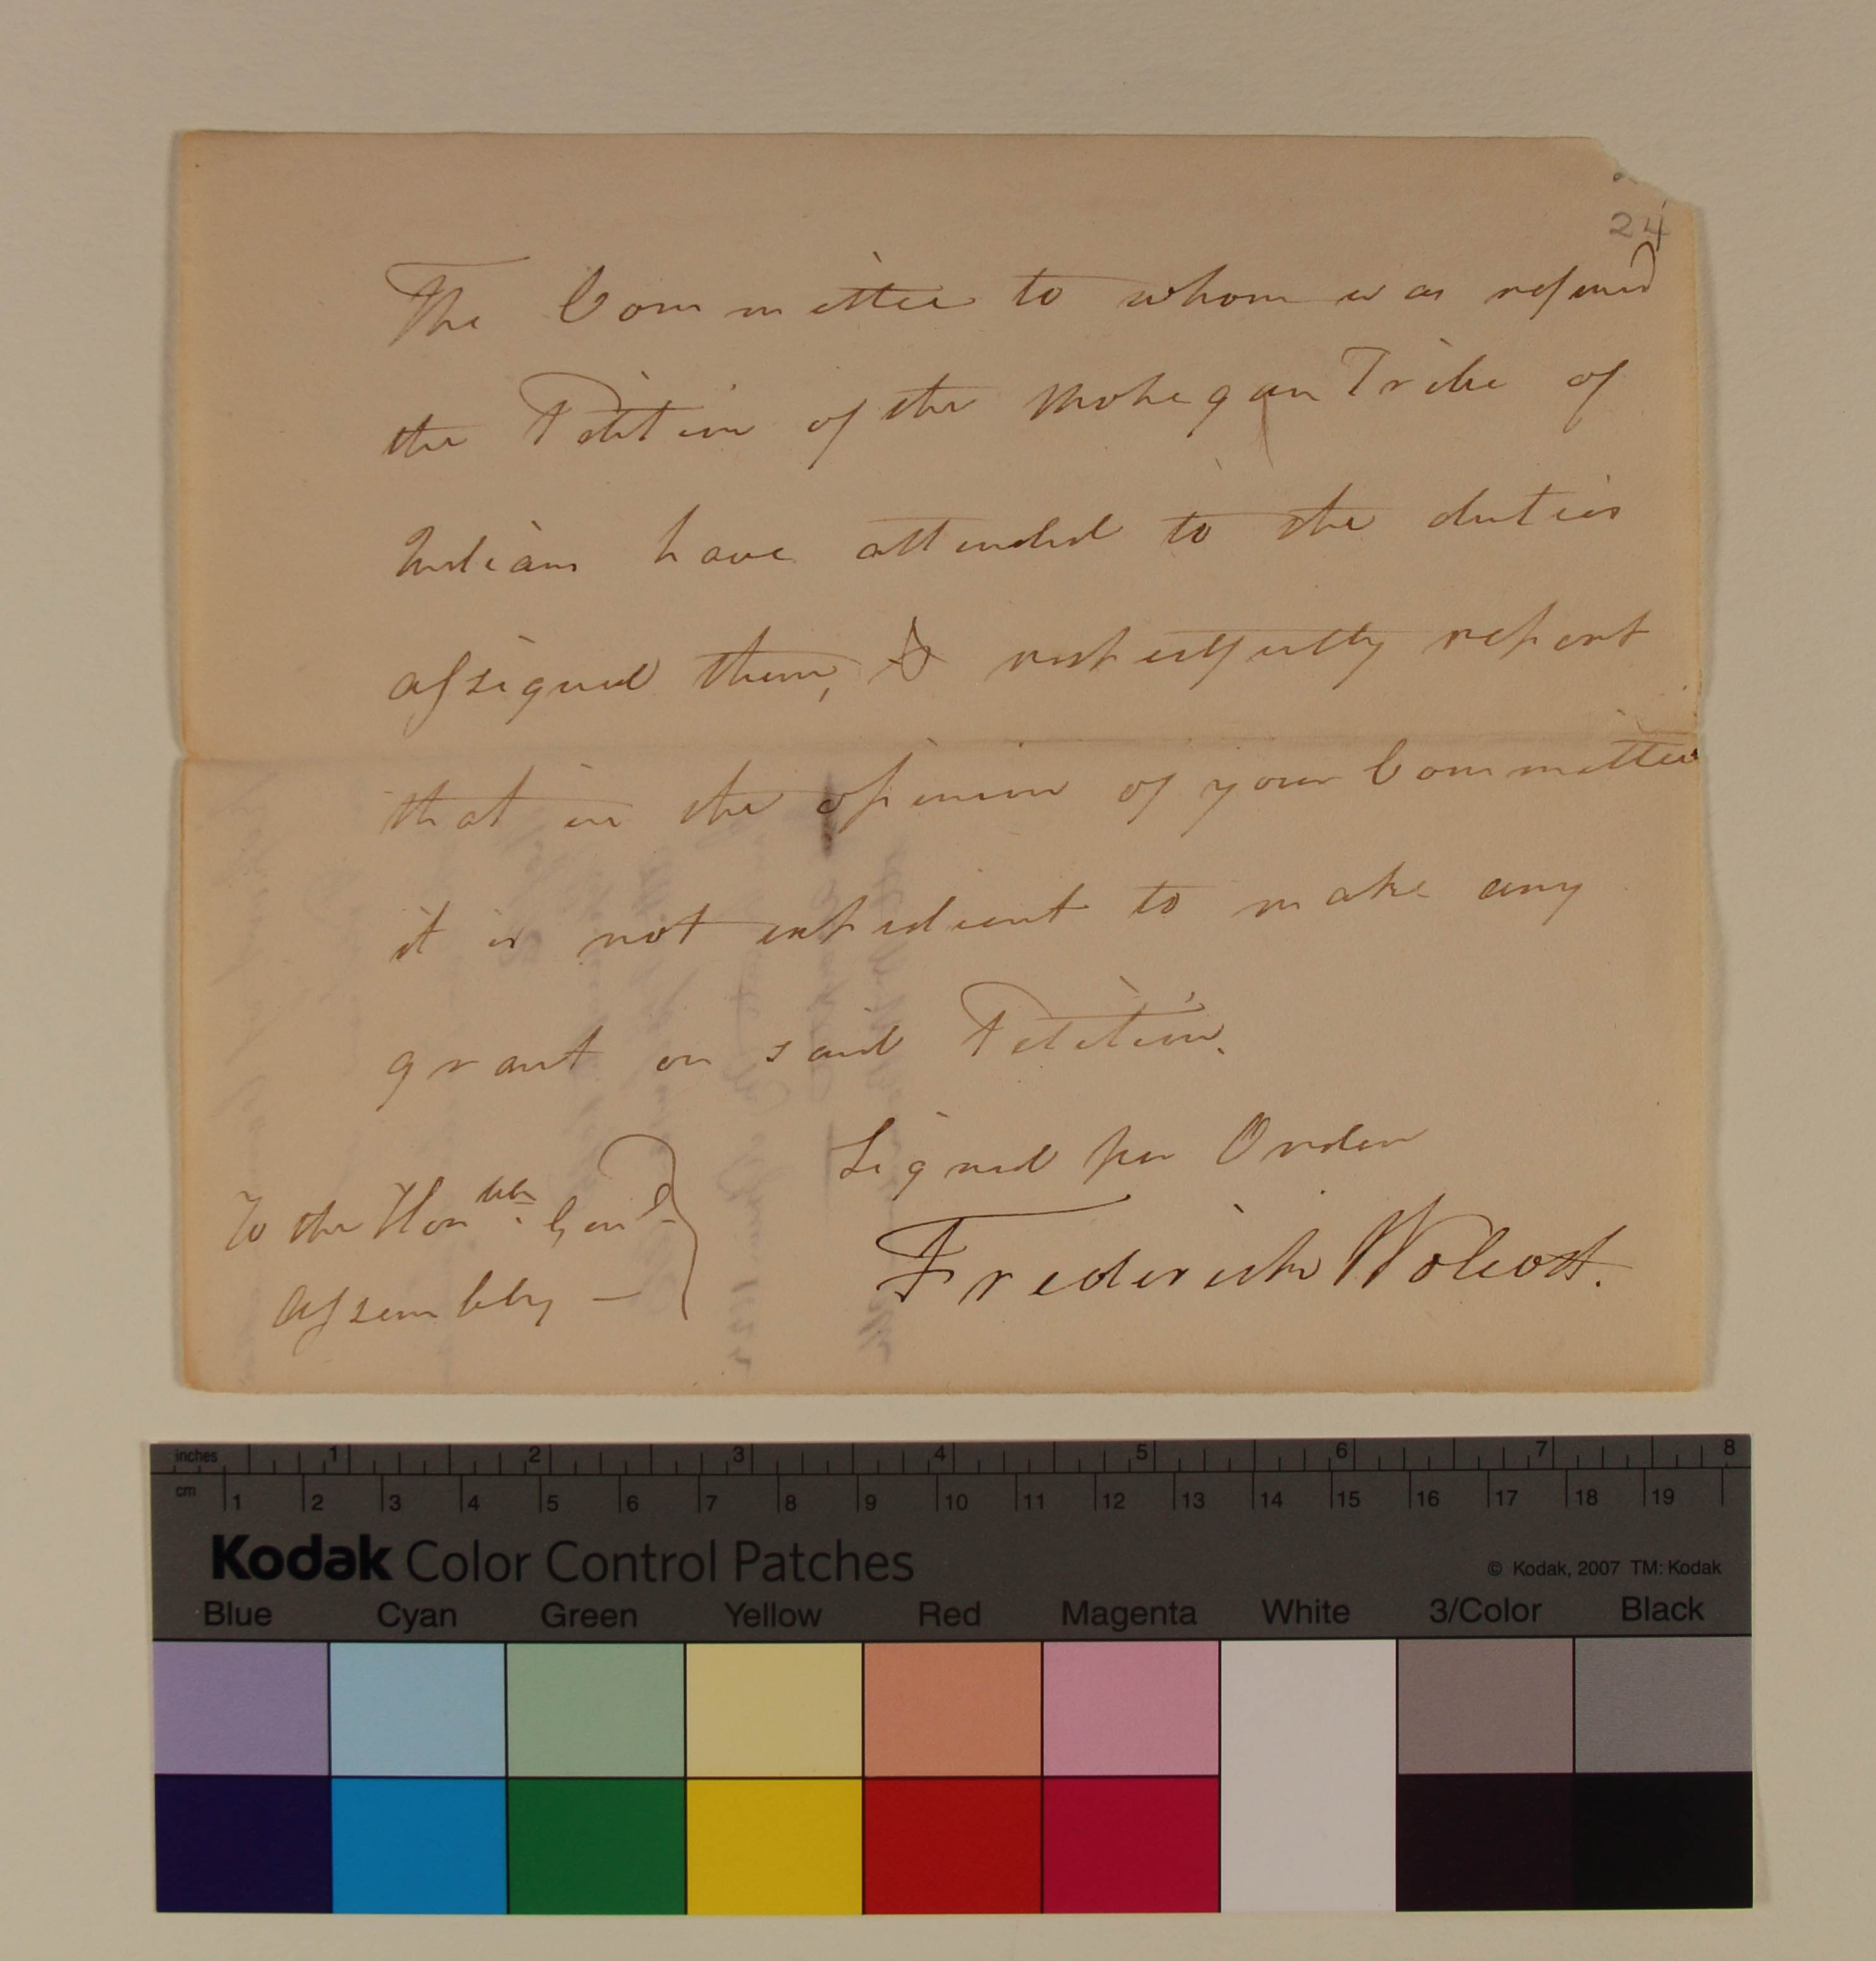 24
The Committee to whom was referred
the Petition of the Mohegan Tribe of
Indians have attended to the duties
assigned them, & respectfully report
that in the opinion of your Committee
it is not expedient to make any
grant on said Petition.
Signed per Order
Frederick Wolcott.
To the Honble. Genl.
Assembly —
inches 1 2 3 4 5 6 7 8
cm 1 2 3 4 5 6 7 8 9 10 11 12 13 14 15 16 17 18 19
Kodak Color Control Patches
© Kodak, 2007 TM: Kodak
Blue Cyan Green Yellow Red Magenta White 3/Color Black